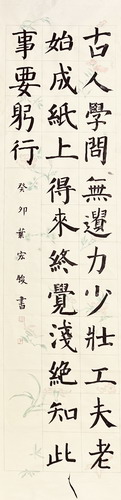 古人學問無遺力少壯工夫老
始成紙上得來終覺淺絕知此
事要躬行
癸卯葉宏駿書